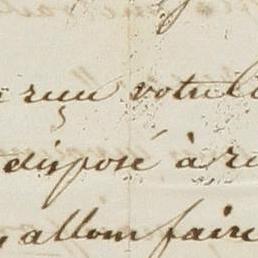 reçu votre
disposé à
allons faire